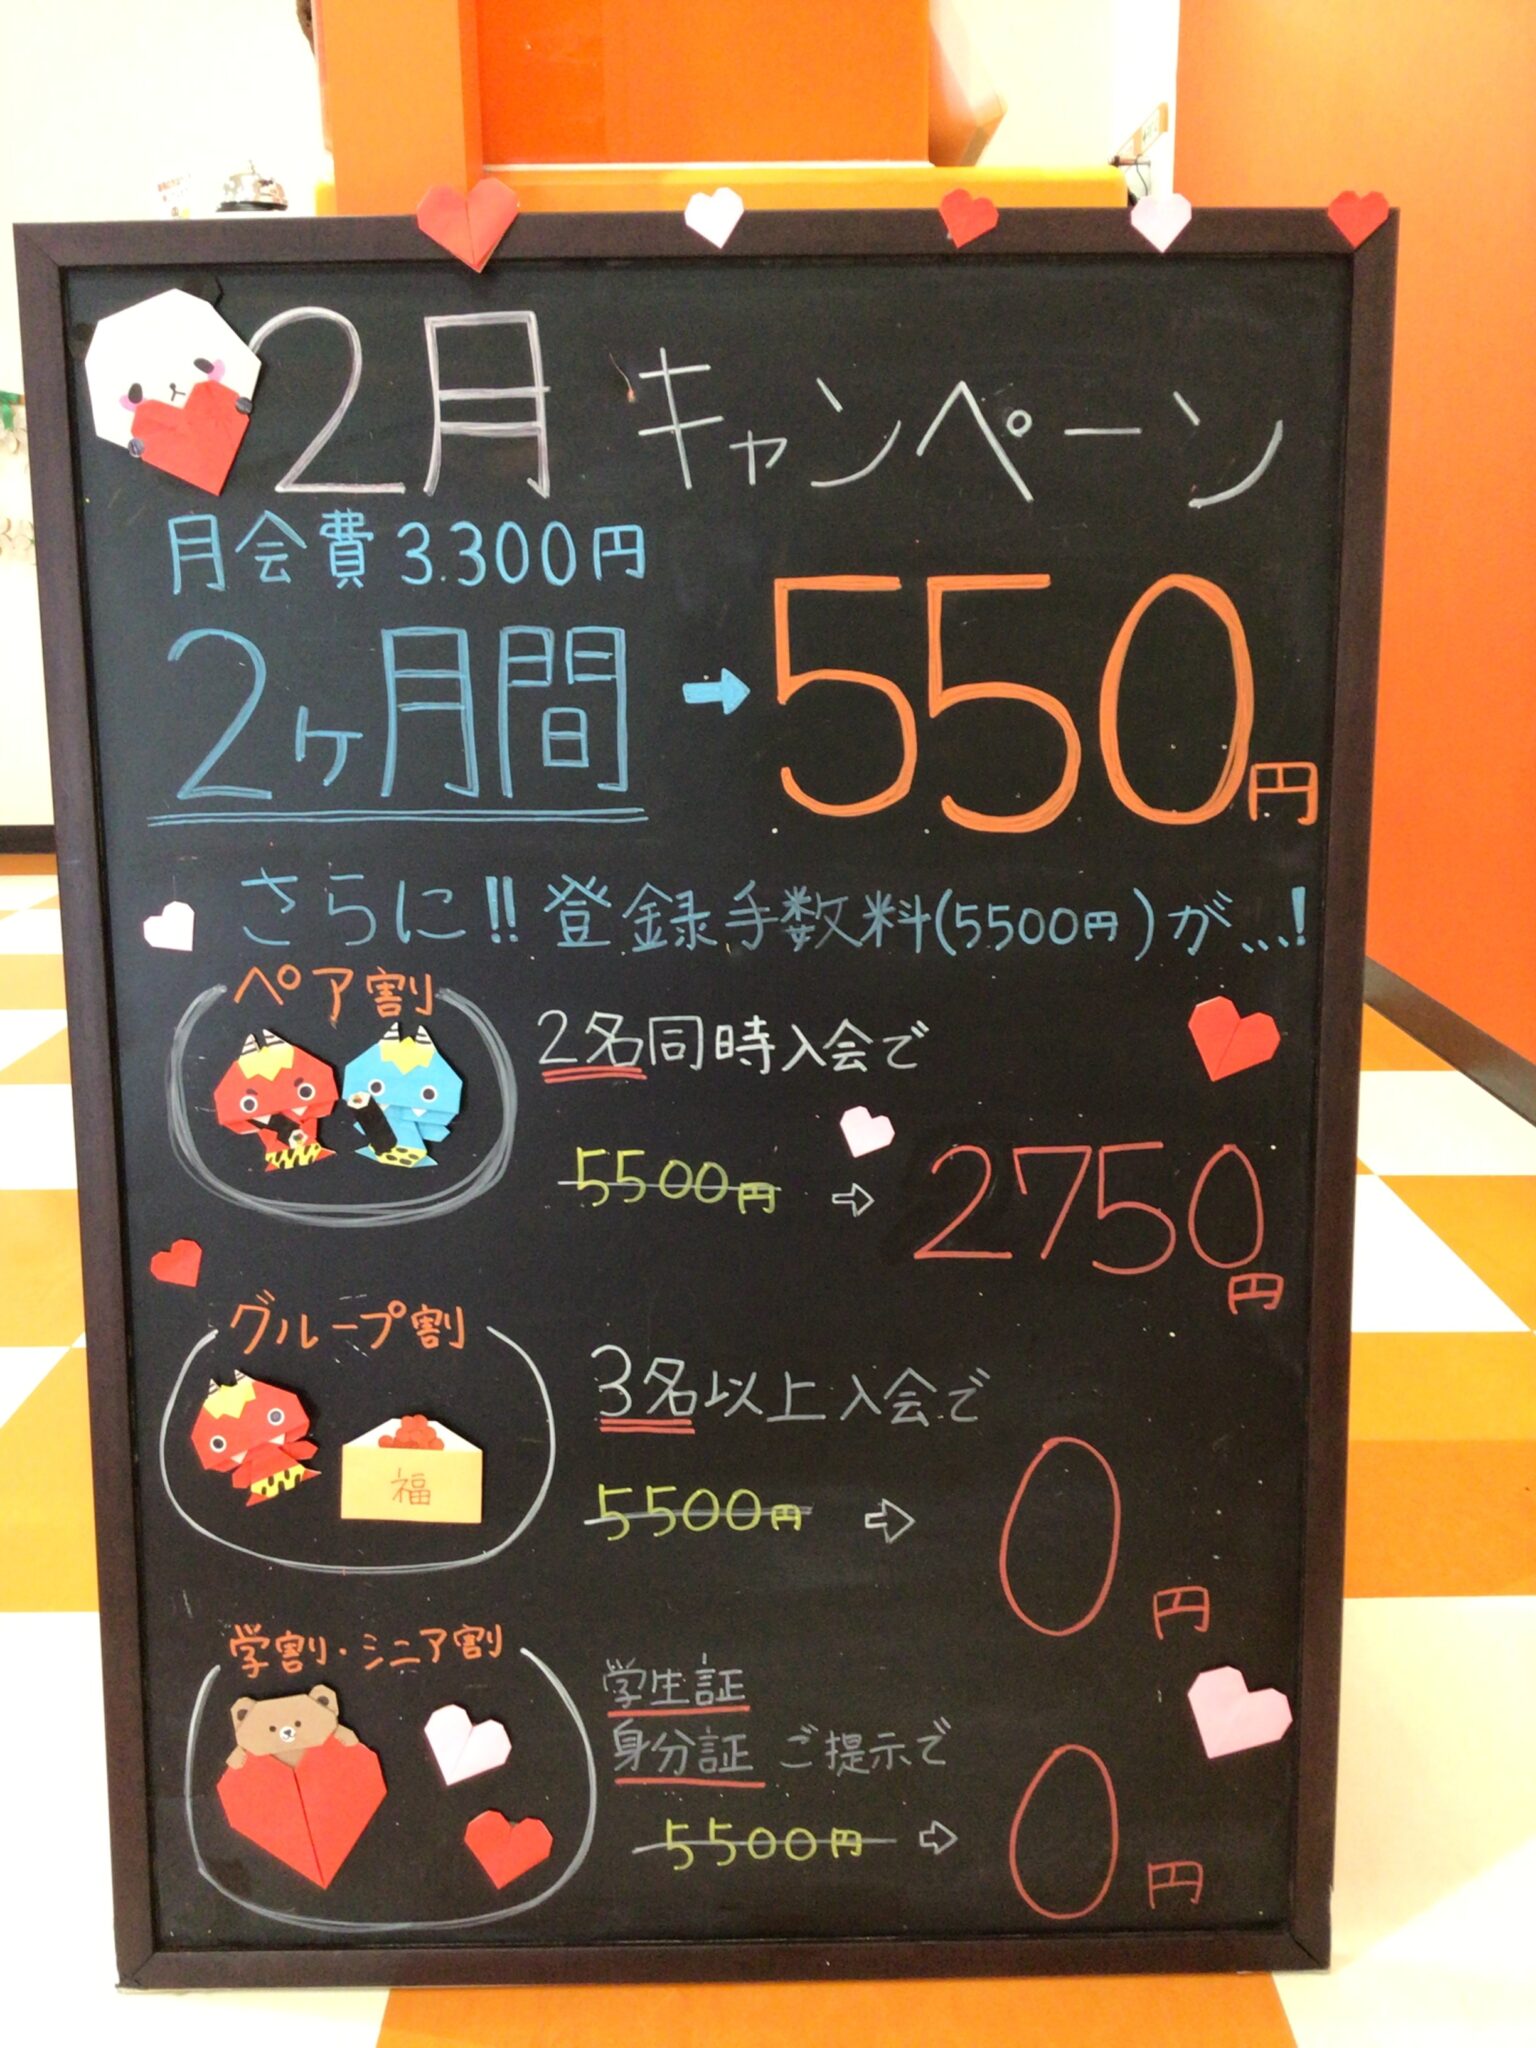 2月 キャンペーン
月会費3.300円
2ヶ月間 → 550円
さらに!! 登録手数料(5500円)が...!
ペア割
2名同時入会で
5500円 ⇨ 2750円
グループ割
3名以上入会で
福
5500円 ⇨ 0円
学割・シニア割
学生証
身分証 ご提示で
5500円 ⇨ 0円